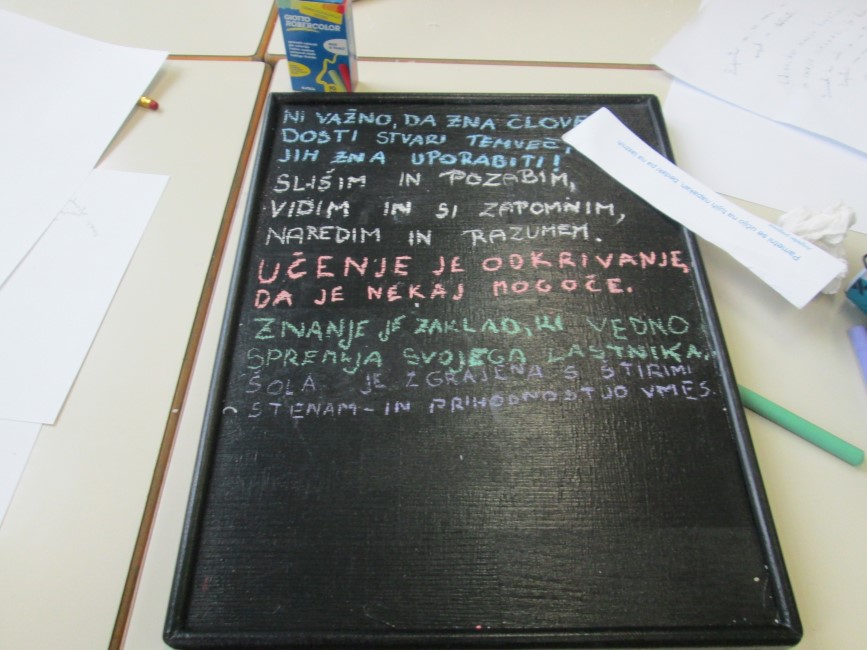 GIOTTO
ROBERCOLOR
NI VAŽNO, DA ZNA ČLOVE
DOSTI STVARI TEMVEČ,
JIH ZNA UPORABITI!
SLIŠIM IN POZABIM,
VIDIM IN SI ZAPOMNIM,
NAREDIM IN RAZUMEM.
UČENJE JE ODKRIVANJE,
DA JE NEKAJ MOGOČE.
ZNANJE JE ZAKLAD, KI VEDNO
SPREMLJA SVOJEGA LASTNIKA.
ŠOLA JE ZGRAJENA S ŠTIRIMI
STENAM- IN PRIHODNOSTJO VMES.
Pametni se učijo na tujih napakah